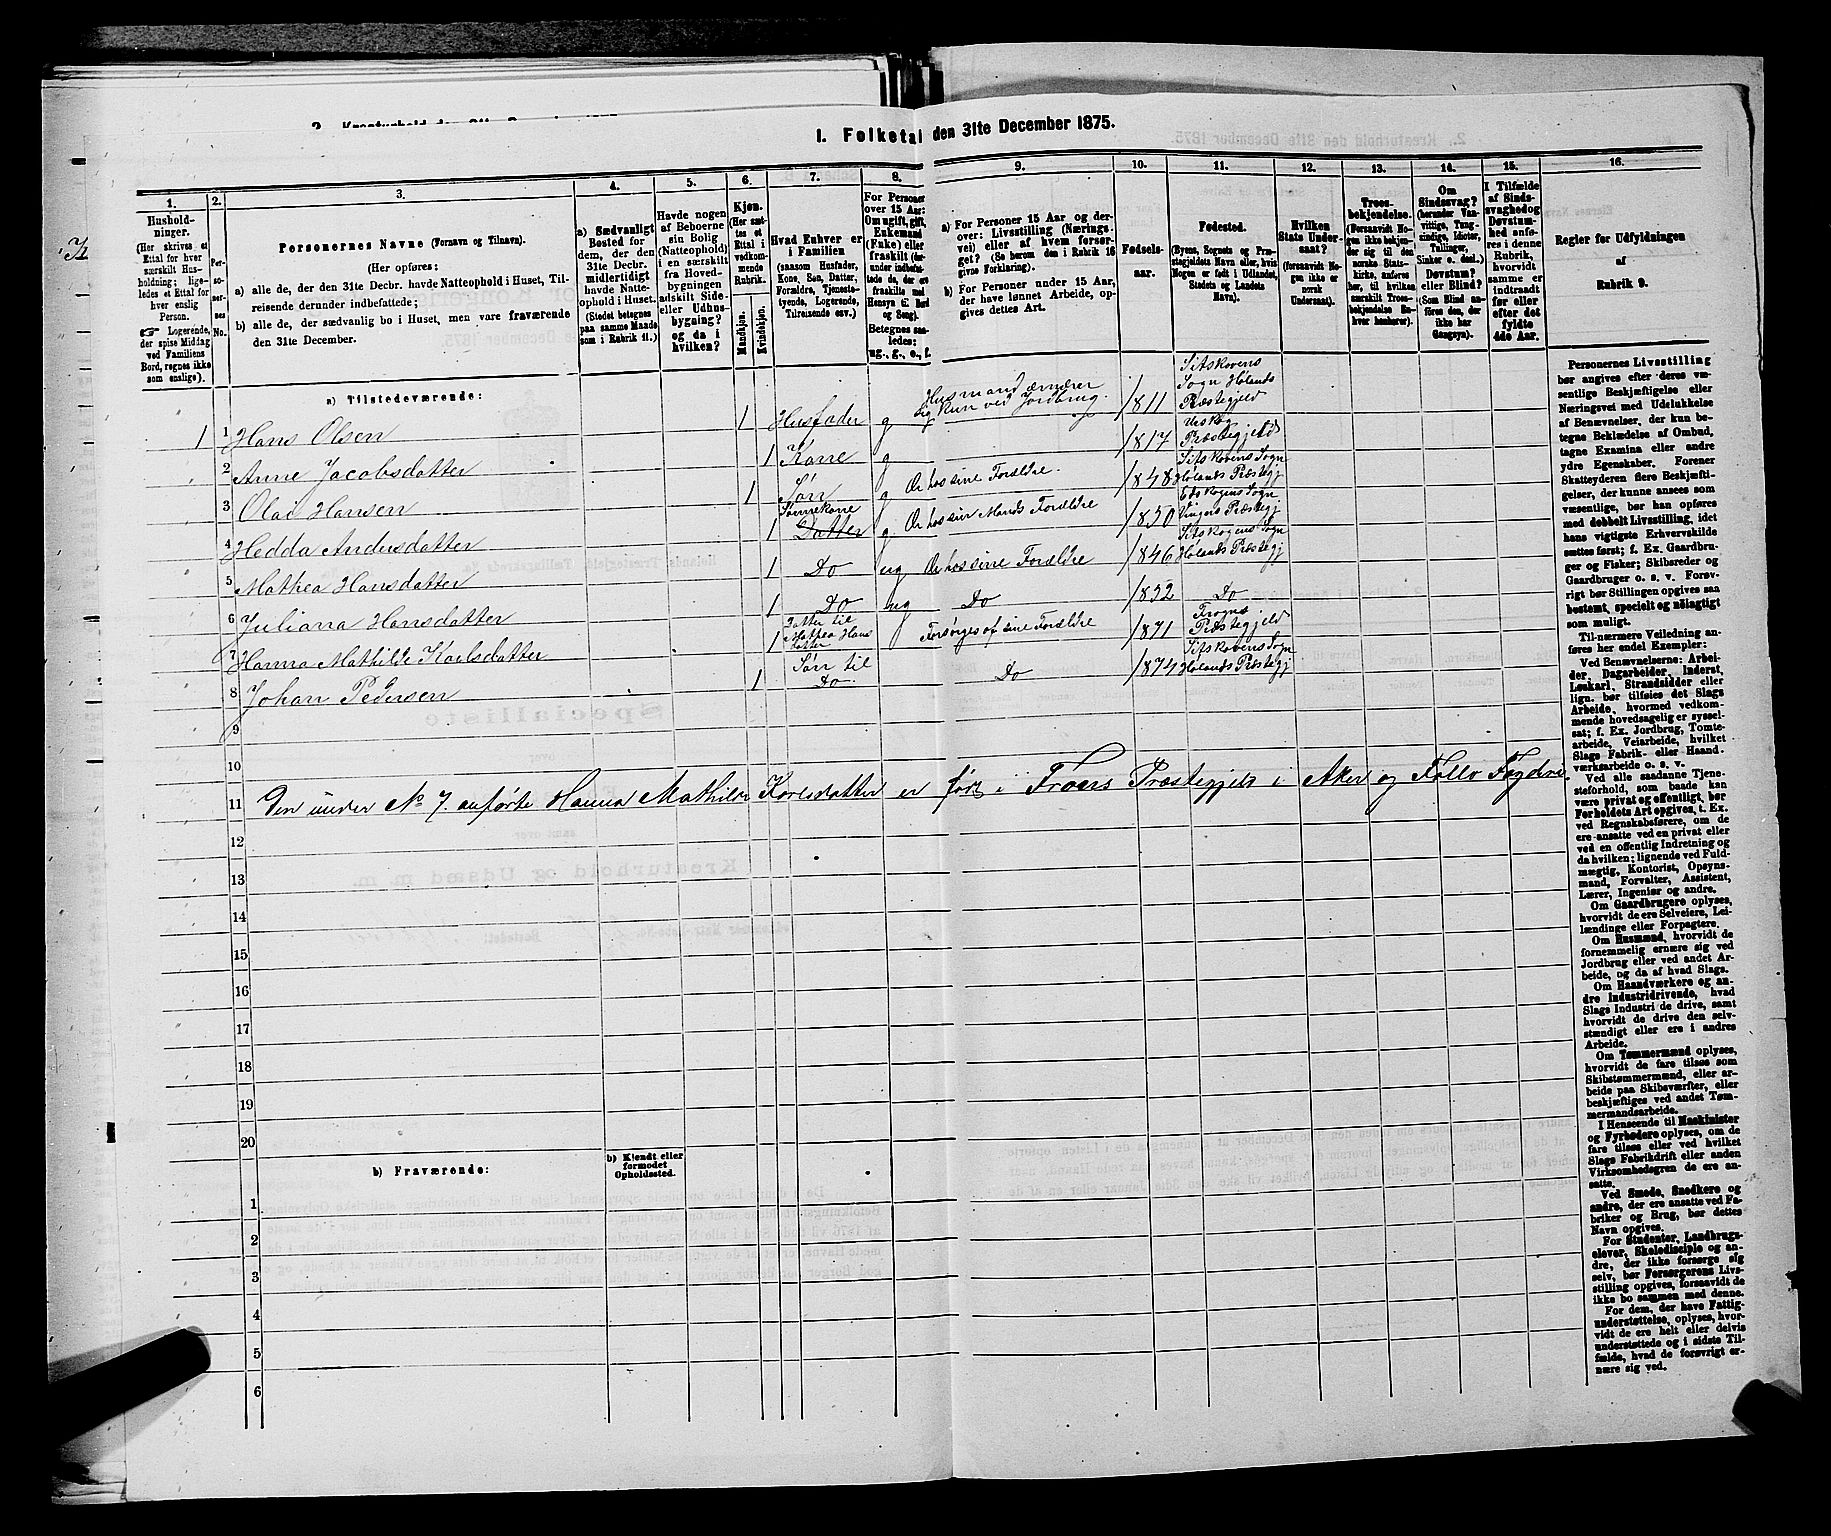 I. Folketal den 31te December 1875.
1. 2. 3. 4. 5. 6. 7. 8. 9. 10. 11. 12. 13. 14. 15. 16.
Husholdninger.
(Her skrives et
Ettal for hver
særskilt Husholdning; ligeledes et Ettal for
hver enslig
Person.
☞ Logerende,
der spise Middag
ved Familiens
Bord, regnes ikke
som enslige).
Personernes No.
Personernes Navne (Fornavn og Tilnavn).
(Her opføres:
a) alle de, der den 31te Decbr. havde Natteophold i Huset, Tilreisende derunder indbefattede;
b) alle de, der sædvanlig bo i Huset, men vare fraværende
den 31te December.
a) Sædvanligt
Bosted for
dem, der den
31te Decbr.
midlertidigt
havde Natteophold i Huset.
(Stedet betegnes
paa samme Maade
som i Rubrik 11.)
Havde nogen
af Beboerne
sin Bolig
(Natteophold)
i en særskilt
fra Hovedbygningen
adskilt Side- eller Udhusbygning?
og da i
hvilken?
Kjøn.
(Her sættes et
Ettal i
vedkommende
Rubrik.
Mandkjøn.
Kvindekjøn.
Hvad Enhver er
i Familien
(saasom Husfader,
Kone, Søn, Datter,
Forældre, Tjenestetyende, Logerende,
Tilreisende osv.)
For Personer
over 15 Aar:
Om ugift, gift,
Enkemand
(Enke) eller
fraskilt
Betegnes saaledes:
ug., g., e., f.
a) For Personer 15 Aar og derover: Livsstilling (Næringsvei) eller af hvem forsørget? (Se herom den i Rubrik 16
givne Forklaring).
b) For Personer under 15 Aar,
der have lønnet Arbeide, opgives dettes Art.
Fødselsaar.
Fødested.
(Byens, Sognets og Præstegjeldets Navn eller, hvis
Nogen er født i Udlandet,
Stedets og Landets
Navn).
Hvilken
Stats Undersaat?
(forsaavidt Nogen ikke er
norsk
Undersaat).
Troesbekjendelse.
(Forsaavidt Nogen ikke bekjender sig til den
norske Statskirke, anføres
her, til hvilken
særskilt Troesbekjendelse Enhver henhører).
Om
Sindssvag?
(herunder Vanvittige, Tungsindige, Idioter,
Tullinger,
Sinker o. desl.)
Døvstum?
eller Blind?
(Som Blind anføres den, der
ikke har
Gangsyn).
I Tilfælde
af Sindssvaghed og
Døvstumhed anføres i denne
Rubrik,
hvorvidt
samme er
indtraadt
før eller
efter det
fyldte
4de Aar.
Regler for Udfyldningen
af
Rubrik 9.
a) Tilstedeværende:
1 1 Hans Olsen 1 Husfader g Husmand ernærer sig kun ved Jordbrug. 1811 Sitskovens Sogn Hølands Præstegjeld
2 Anne Jacobsdatter 1 Kone g 1817 Urskog Præstegjeld
3 Olai Hansen 1 Søn g Er hos sine Forældre. 1848 Sitskovens Sogn Hølands Præstegj
4 Hedda Andersdatter 1 Datter Sønnekone g Er hos sin Mands Forældre 1850 Edskogens Sogn Vingers Præstegj
5 Mathea Hansdatter 1 Do ug Er hos sine Forældre 1846 Sitskogens Sogn Hølands Præstegj
6 Juliana Hansdatter 1 Do ug Do 1852 Do
7 Hanna Mathilde Karlsdatter 1 Datter til Mathea Hansdatter Forsørges af sine Forældre 1871 Frogns Præstegjeld
8 Johan Pedersen 1 Søn til Do Do 1874 Sitskovens Sogn Hølands Præstegj
9
10
11 Den under No 7. anførte Hanna Mathilde Karlsdatter er født i Froens Præstegjeld i Aker og Follo Fogderi
12
13
14
15
16
17
18
19
20
b) Fraværende:
b) Kjendt eller
formodet
Opholdssted.
1
2
3
4
5
6
Personernes Livsstilling
bør angives efter deres væsentlige Beskjæftigelse eller
Næringsvei med Udelukkelse
af Benævnelser, der kun betegne Beklædelse af Ombud,
tagne Examina eller andre
ydre Egenskaber. Forener
Skatteyderen flere Beskjæftigelser, der kunne ansees som
væsentlige, bør han opføres
med dobbelt Livsstilling, idet
hans vigtigste Erhvervskilde
sættes først; f. Ex. Gaardbruger og Fisker; Skibsreder og
Gaardbruger o. s. v. Forøvrigt bør Stillingen opgives saa
bestemt, specielt og nøiagtigt
som muligt.
Til nærmere Veiledning anføres her endel Exempler:
Ved Benævnelserne: Arbeider, Dagarbeider, Inderst,
Løskarl, Strandsidder eller
lign. bør tilføies det Slags
Arbeide, hvormed vedkommende hovedsagelig er sysselsat; f. Ex. Jordbrug, Tomtearbeide, Veiarbeide, hvilket
Slags Fabrik- eller Haandværksarbeide o. s. v.
Ved alle saadanne Tjenesteforhold, som baade kan
være privat og offentligt, bør
Forholdets Art opgives, f. Ex.
ved Regnskabsførere, om de
ere ansatte ved en privat eller
ved en offentlig Indretning og
da hvilken; lignende ved Fuldmægtig, Kontorist, Opsynsmand, Forvalter, Assistent,
Lærer, Ingeniør og andre.
Om Gaardbrugere oplyses,
hvorvidt de ere Selveiere, Leilændinge eller Forpagtere.
Om Husmænd, hvorvidt de
fornemmelig ernære sig ved
Jordbrug eller ved andet Arbeide, og da af hvad Slags.
Om Haandværkere og andre Industridrivende, hvad
Slags Industri de drive, samt
hvorvidt de drive den selvstændigt eller ere i andres
Arbeide.
Om Tømmermænd oplyses,
hvorvidt de fare tilsøs som
Skibstømmermænd, eller arbeide paa Skibsværfter, eller
beskjæftiges ved andet Tømmermandsarbeide.
I Henseende til Maskinister
og Fyrbødere oplyses, om de
fare tilsøs eller ved hvilket
Slags Fabrikdrift eller anden
Virksomhedsgren de ere ansatte.
Ved Smede, Snedkere og
andre, der ere ansatte ved Fabriker og Brug, bør dettes
Navn opgives.
For Studenter, Landbrugselever, Skoledisciple og andre, der ikke forsørge sig
selv, bør Forsørgerens Livsstilling opgives, forsaavidt de
ikke bo sammen med denne.
For dem, der have Fattigunderstøttelse, oplyses, hvorvidt de ere helt eller delvis
understøttede og i sidste Tilfælde, hvad de forøvrigt ernære sig ved.